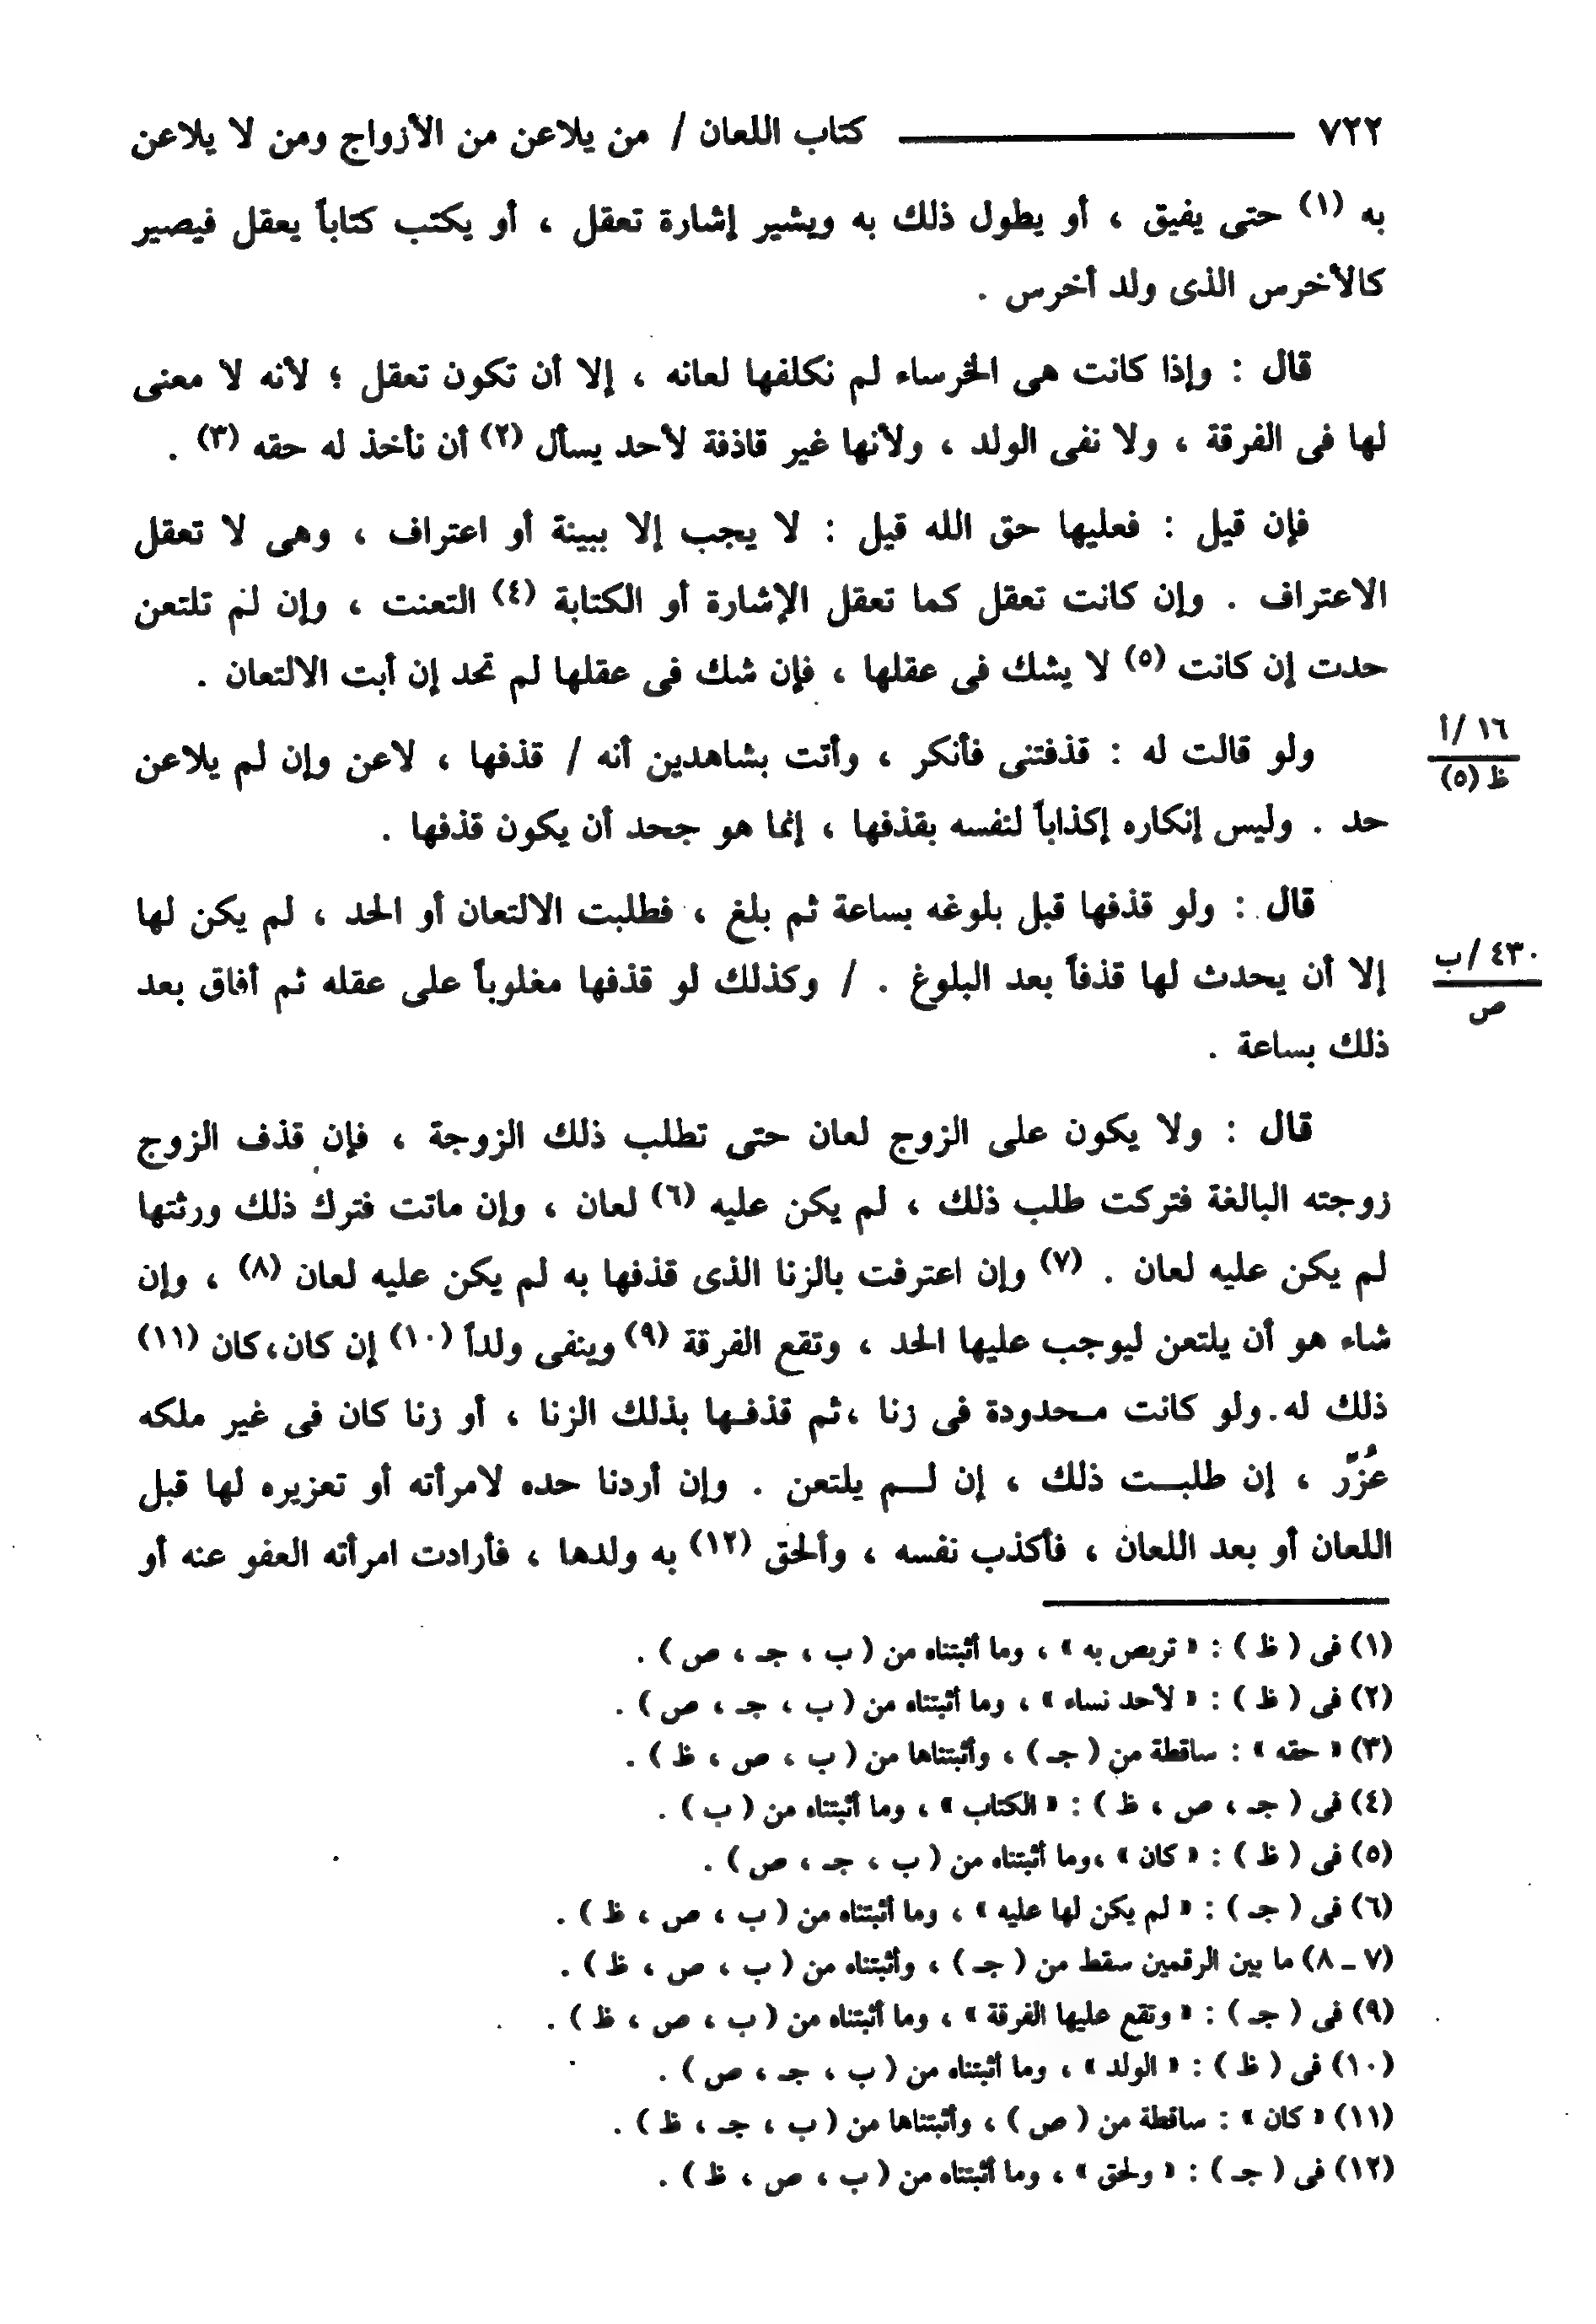 ٧٢٢ ـــــــ كتاب اللعان / من يلاعن من الأزواج ومن لا يلاعن
به (١) حتى يفيق ، أو يطول ذلك به ويشير إشارة تعقل ، أو يكتب كتاباً يعقل فيصير
كالأخرس الذى ولد أخرس .
قال : وإذا كانت هى الخرساء لم نكلفها لعانه ، إلا أن تكون تعقل ؛ لأنه لا معنى
لها فى الفرقة ، ولا نفى الولد ، ولأنها غير قاذفة لأحد يسأل (٢) أن نأخذ له حقه (٣) .
فإن قيل : فعليها حق الله قيل : لا يجب إلا ببينة أو اعتراف ، وهى لا تعقل
الاعتراف . وإن كانت تعقل كما تعقل الإشارة أو الكتابة (٤) التعنت ، وإن لم تلتعن
حدت إن كانت (٥) لا يشك فى عقلها ، فإن شك فى عقلها لم تحد إن أبت الالتعان .
ولو قالت له : قذفتنى فأنكر ، وأتت بشاهدين أنه / قذفها ، لاعن وإن لم يلاعن
١٦ /أ
ظ (٥)
حد . وليس إنكاره إكذاباً لنفسه بقذفها ، إنما هو جحد أن يكون قذفها .
قال : ولو قذفها قبل بلوغه بساعة ثم بلغ ، فطلبت الالتعان أو الحد ، لم يكن لها
إلا أن يحدث لها قذفاً بعد البلوغ . / وكذلك لو قذفها مغلوباً على عقله ثم أفاق بعد
٤٣٠ /ب
ص
ذلك بساعة .
قال : ولا يكون على الزوج لعان حتى تطلب ذلك الزوجة ، فإن قذف الزوج
زوجته البالغة فتركت طلب ذلك ، لم يكن عليه (٦) لعان ، وإن ماتت فترك ذلك ورثتها
لم يكن عليه لعان . (٧) وإن اعترفت بالزنا الذى قذفها به لم يكن عليه لعان (٨) ، وإن
شاء هو أن يلتعن ليوجب عليها الحد ، وتقع الفرقة (٩) وينفى ولداً (١٠) إن كان،كان (١١)
ذلك له.ولو كانت محدودة فى زنا ،ثم قذفها بذلك الزنا ، أو زنا كان فى غير ملكه
عُزِّر ، إن طلبت ذلك ، إن لم يلتعن . وإن أردنا حده لامرأته أو تعزيره لها قبل
اللعان أو بعد اللعان ، فأكذب نفسه ، وألحق (١٢) به ولدها ، فأرادت امرأته العفو عنه أو
(١) فى ( ظ ) : « تربص به » ، وما أثبتناه من ( ب ، جـ ، ص ) .
(٢) فى ( ظ ) : « لأحد نساء » ، وما أثبتناه من ( ب ، جـ ، ص ) .
(٣) « حقه » : ساقطة من ( جـ ) ، وأثبتناها من ( ب ، ص ، ظ ) .
(٤) فى ( جـ ، ص ، ظ ) : « الكتاب » ، وما أثبتناه من ( ب ) .
(٥) فى ( ظ ) : « كان » ،وما أثبتناه من ( ب ، جـ ، ص ) .
(٦) فى ( جـ ) : « لم يكن لها عليه » ، وما أثبتناه من ( ب ، ص ، ظ ) .
(٧ ـ ٨) ما بين الرقمين سقط من ( جـ ) ، وأثبتناه من ( ب ، ص ، ظ ) .
(٩) فى ( جـ ) : « وتقع عليها الفرقة » ، وما أثبتناه من ( ب ، ص ، ظ ) .
(١٠) فى ( ظ ) : « الولد » ، وما أثبتناه من ( ب ، جـ ، ص ) .
(١١) « كان » : ساقطة من ( ص ) ، وأثبتناها من ( ب ، جـ ، ظ ) .
(١٢) فى ( جـ ) : « ولحق » ، وما أثبتناه من ( ب ، ص ، ظ ) .